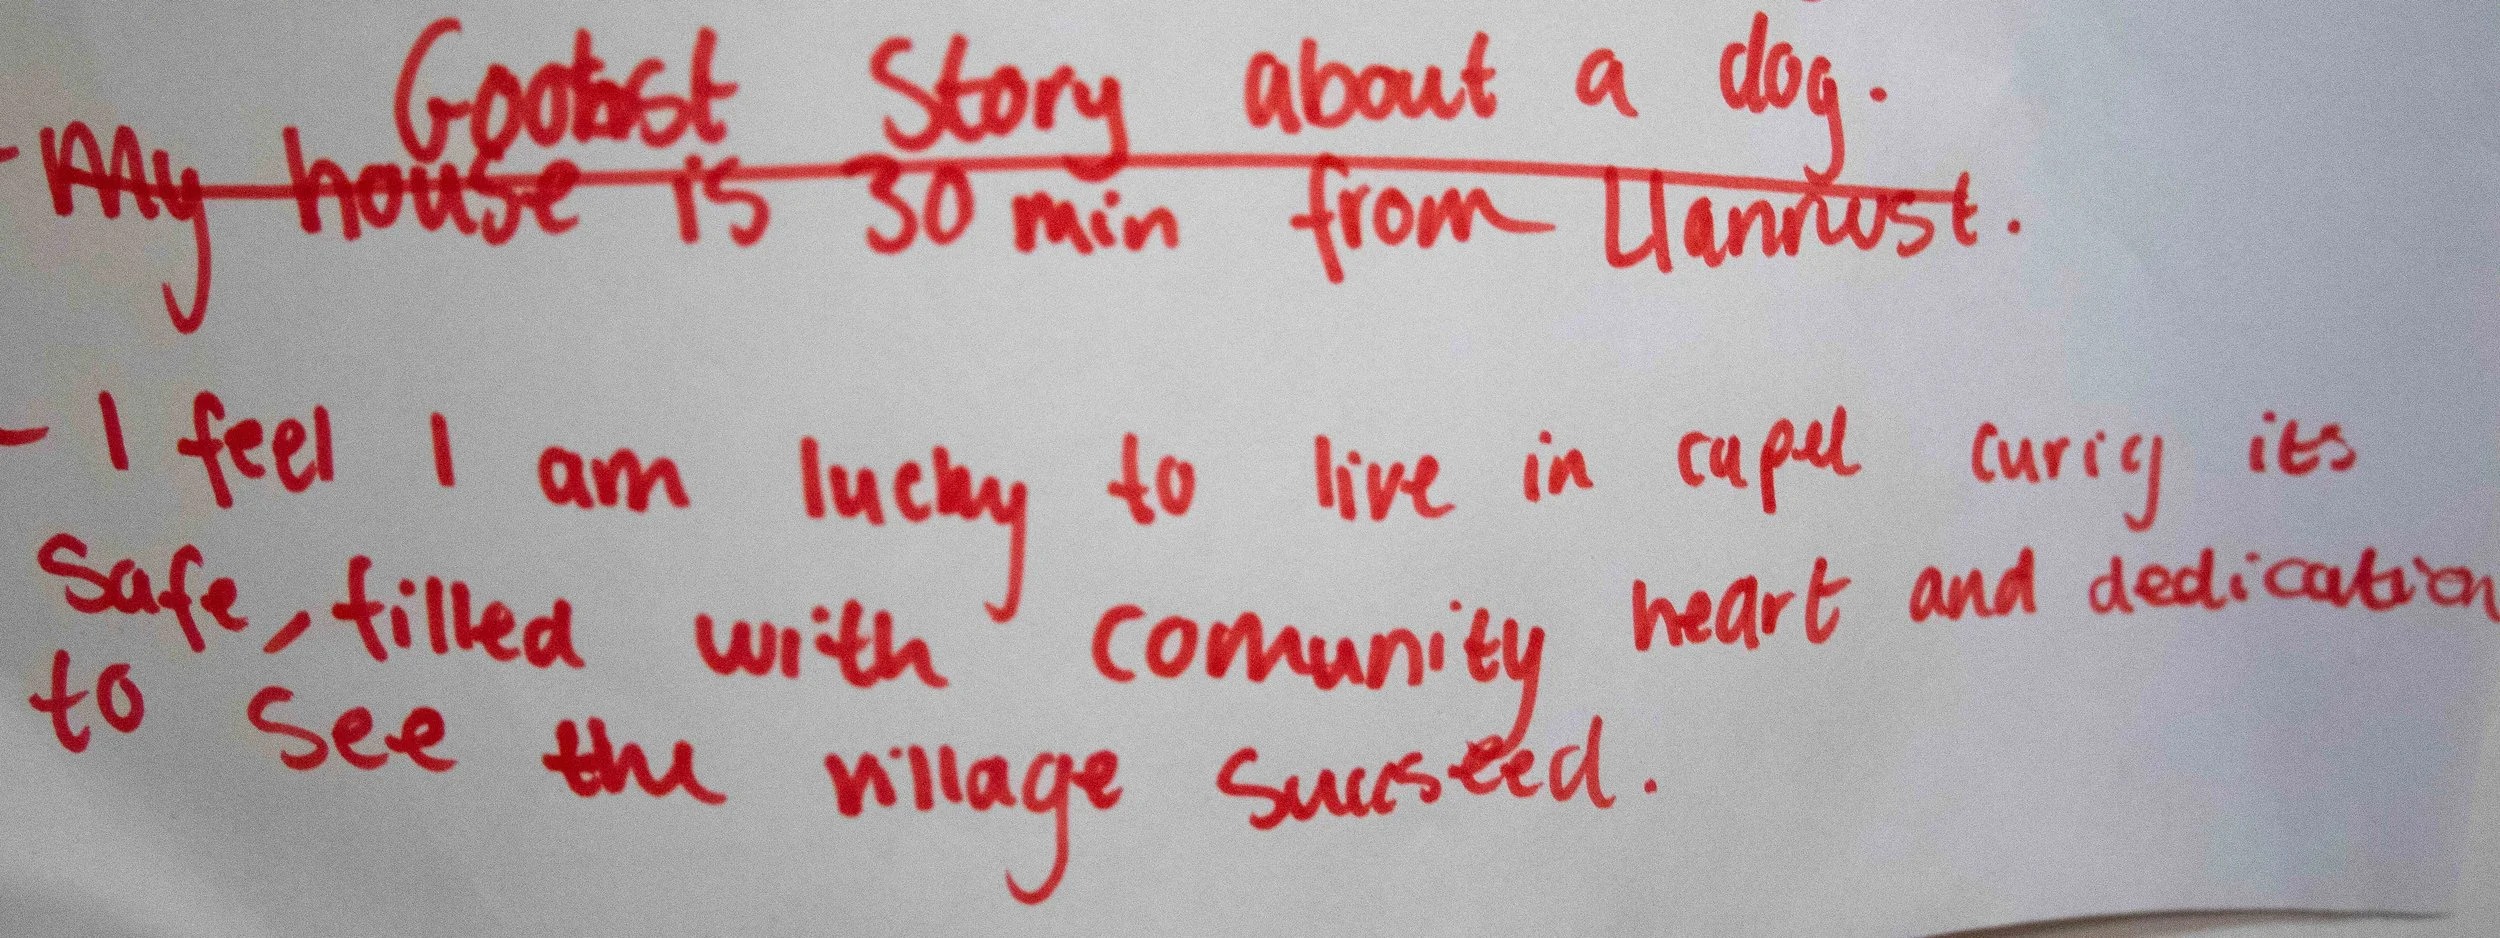 Goohst Story about a dog.
- My house is 30 min from Llanrwst.
- I feel I am lucky to live in capel curig its
safe, filled with comunity heart and dedication
to see the village sucseed.